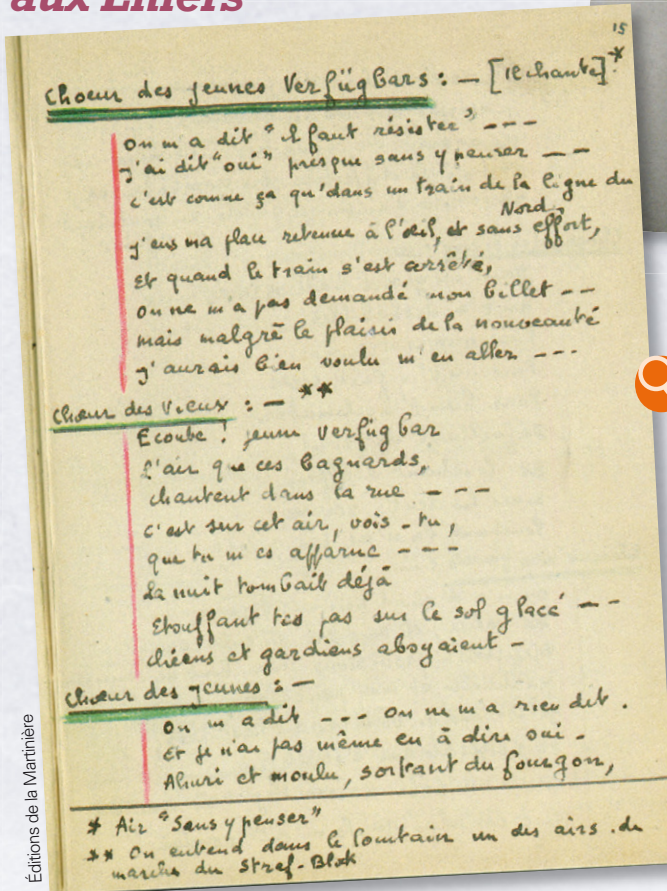 aux Enfers
15
Choeur des jeunes Verfügbars : — [Il chante]*
On m'a dit "il faut résister" ---
j'ai dit "oui" presque sans y penser --
c'est comme ça qu'dans un train de la ligne du
Nord,
j'eus ma place retenue à l'oeil, et sans effort,
Et quand le train s'est arrêté,
on ne m'a pas demandé mon billet --
mais malgré le plaisir de la nouveauté
j'aurais bien voulu m'en aller ---
Choeur des Vieux : — **
Ecoute ! jeune Verfügbar
L'air que ces bagnards,
chantent dans la rue ---
c'est sur cet air, vois-tu,
que tu m'es apparue ---
La nuit tombait déjà
Etouffant tes pas sur le sol glacé --
chiens et gardiens aboyaient -
Choeur des jeunes : —
On m'a dit --- on ne m'a rien dit.
Et je n'ai pas même eu à dire oui -
Ahuri et moulu, sortant du fourgon,
* Air "Sans y penser"
** On entend dans le lointain un des airs de
marche du Straf-Blok
Éditions de la Martinière